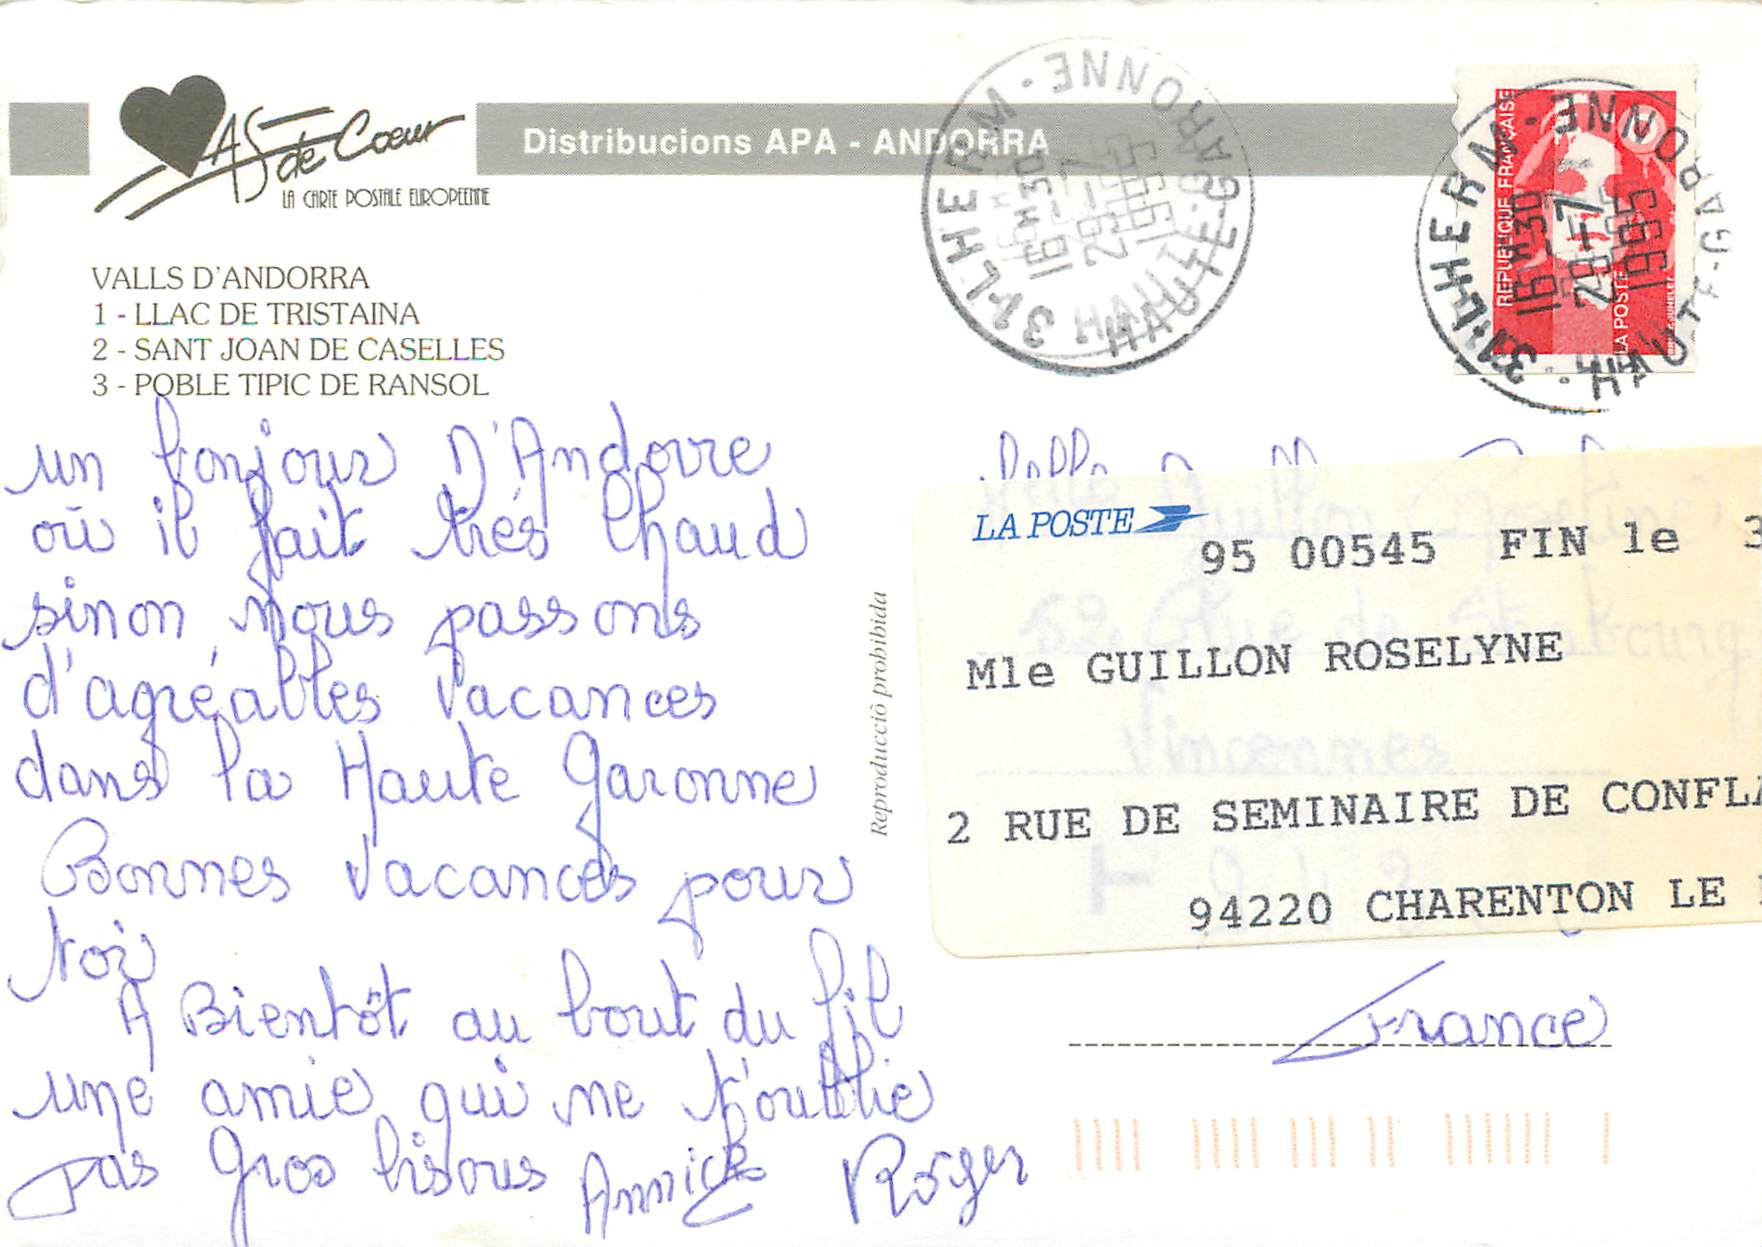 AS de Coeur
LA CARTE POSTALE EUROPEENNE
Distribucions APA - ANDORRA
VALLS D'ANDORRA
1 - LLAC DE TRISTAINA
2 - SANT JOAN DE CASELLES
3 - POBLE TIPIC DE RANSOL
un bonjour D'Andorre
où il fait trés chaud
sinon nous passons
d'agréables vacances
dans la Haute Garonne
Bonnes vacances pour
toi
A Bientôt au bout du fil
une amie qui ne t'oublie
pas Gros bisous Annick Roger
Reproducciò prohibida
31-LHERM
HAUTE-GARONNE
16H30
29-7
1995
REPUBLIQUE FRANÇAISE
LA POSTE
31-LHERM
HAUTE-GARONNE
16H30
29-7
1995
Melle Guillon
Rue de Strasbourg
Vincennes
LA POSTE
95 00545 FIN le 3
Mle GUILLON ROSELYNE
2 RUE DE SEMINAIRE DE CONFLA
94220 CHARENTON LE
France